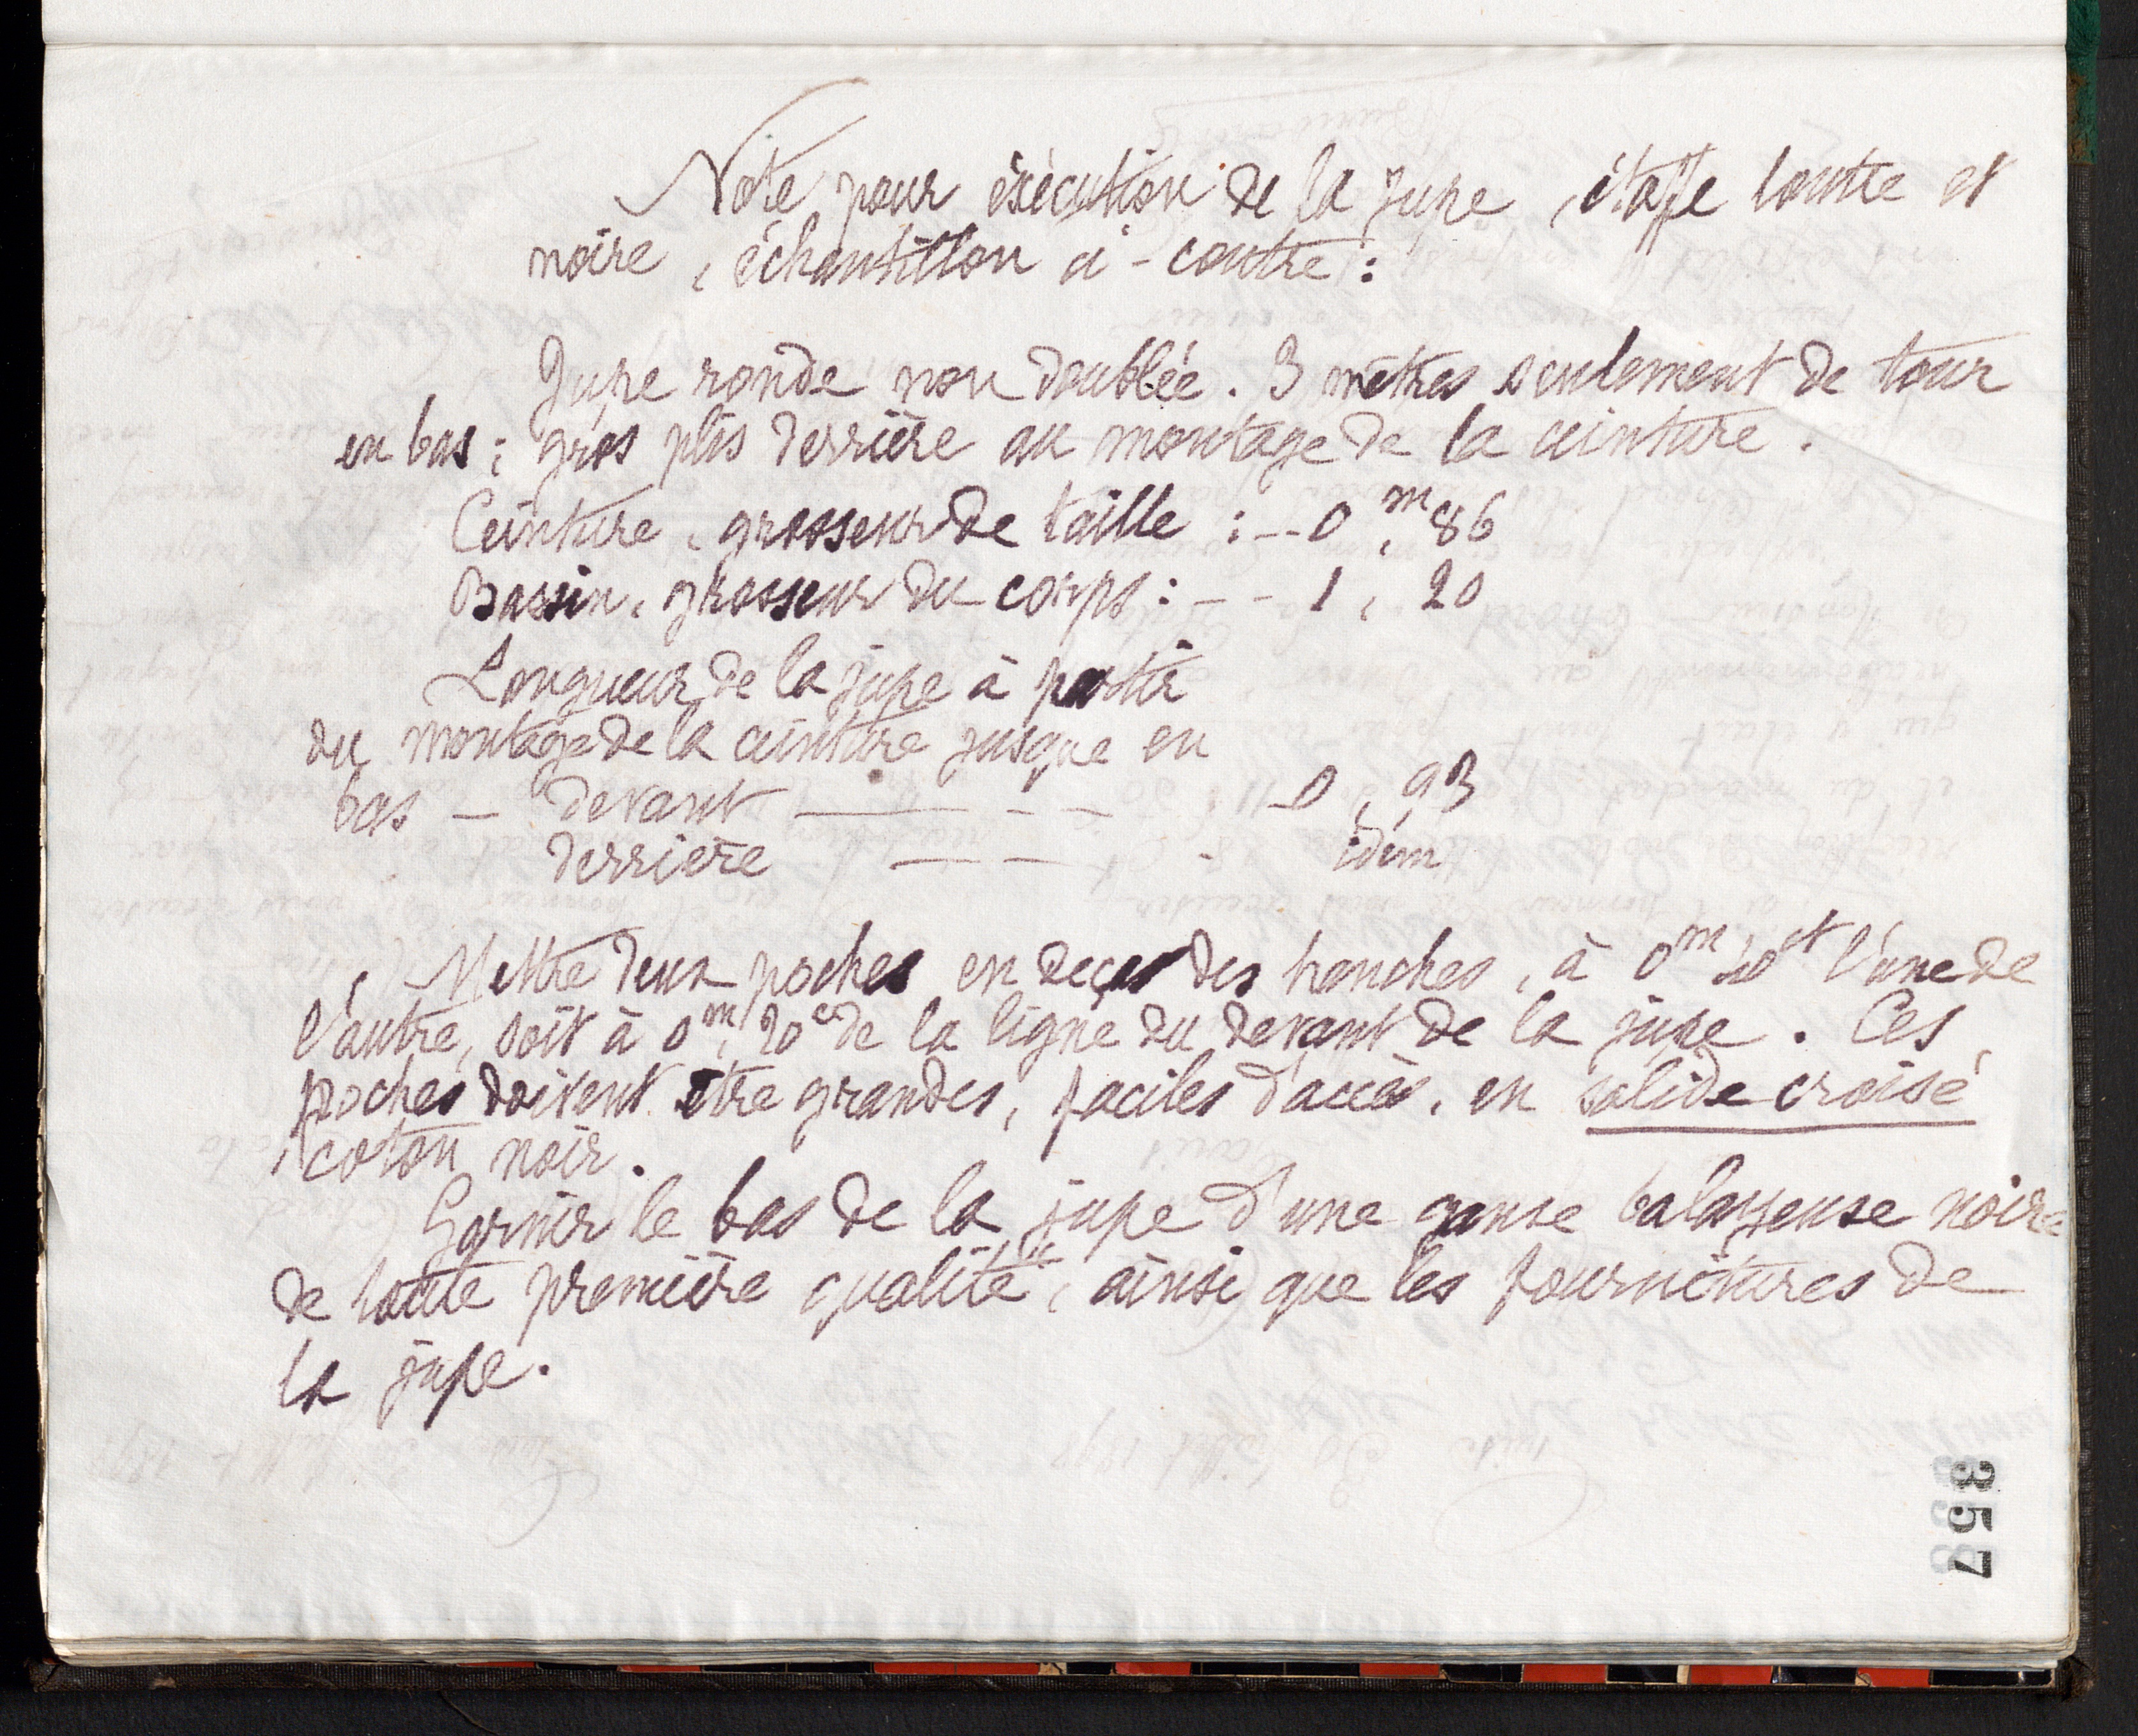 Note pour exécution de la jupe, étoffe loutre et
noire, échantillon ci-contre :
Jupe ronde non doublée. 3 mètres seulement de tour
en bas ; gros plis derrière au montage de la ceinture.
Ceinture, grosseur de taille : -- 0m,86
Bassin, grosseur du corps : -- 1,20
Longueur de la jupe à partir
du montage de la ceinture jusque en
bas — devant — — — 0,93
derrière — — idem
Mettre deux poches en deça des hanches, à 0m40ct l'une de
l'autre, soit à 0m,20c de la ligne du devant de la jupe. Ces
poches doivent être grandes, faciles d'accès, en solide croisé
coton noir.
Garnir le bas de la jupe d'une ganse balayeuse noire
de toute première qualité, ainsi que les fournitures de
la jupe.
357